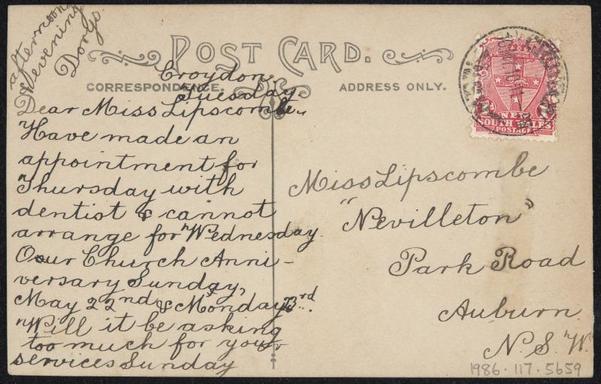 afternoon
& evening
Dorys.
POST CARD.
CORRESPONDENCE.
ADDRESS ONLY.
Croydon
Tuesday
Dear Miss Lipscombe,
Have made an
appointment for
Thursday with
dentist & cannot
arrange for Wednesday.
Our Church Anni-
versary Sunday,
May 22nd & Monday 23rd.
Will it be asking
too much for your
services Sunday
NEW
SOUTH WALES
POSTAGE
Miss Lipscombe
"Nevilleton"
Park Road
Auburn
N.S.W.
1986.117.5659